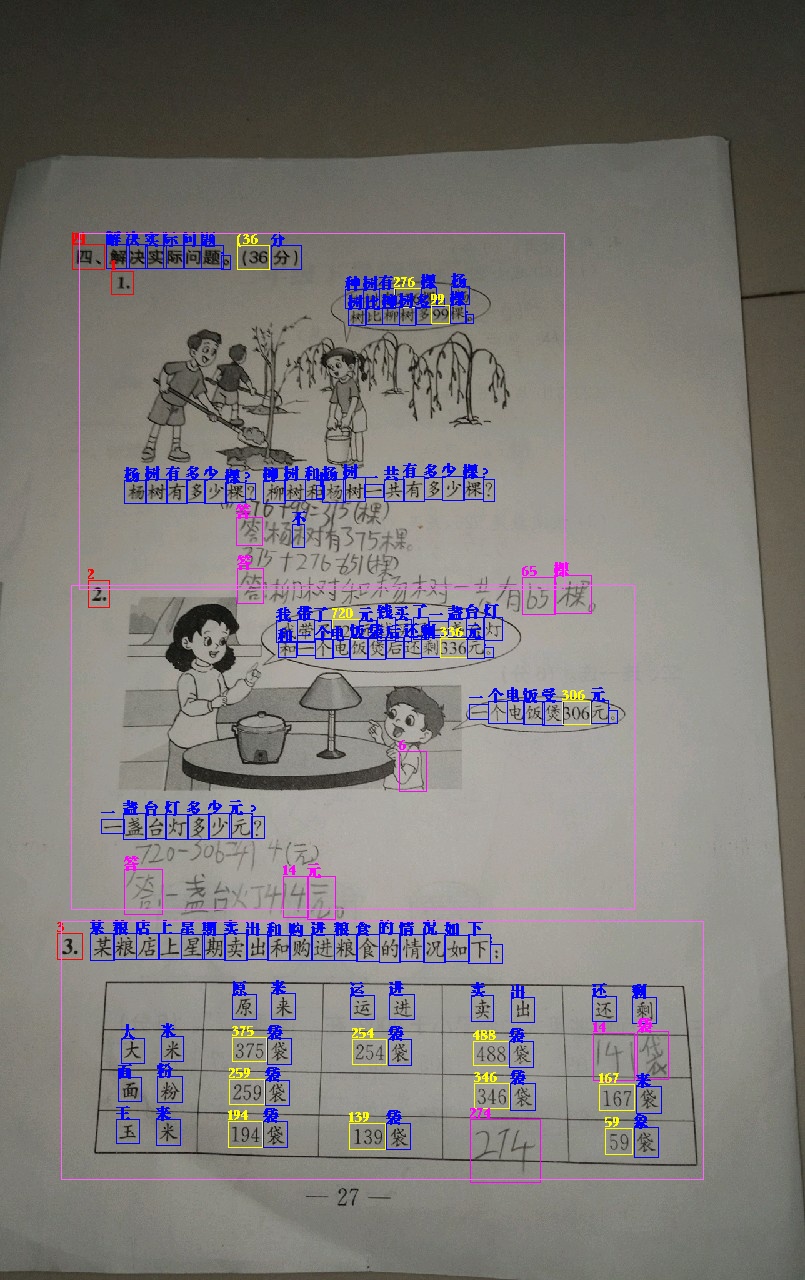 四、解决实际问题。(36分)
1.
柳树有276棵,杨
树比柳树多99棵。
杨树有多少棵?柳树和杨树一共有多少棵?
276+99=375(棵)
答:杨树有375棵。
375+276=651(棵)
答:柳树和杨树一共有651棵。
2.
我带了720元钱买了一盏台灯
和一个电饭煲后还剩336元。
一个电饭煲306元。
一盏台灯多少元?
720-306=414(元)
答:一盏台灯414元。
3. 某粮店上星期卖出和购进粮食的情况如下:
原来 运进 卖出 还剩
大米 375袋 254袋 488袋 141袋
面粉 259袋 346袋 167袋
玉米 194袋 139袋 274 59袋
— 27 —